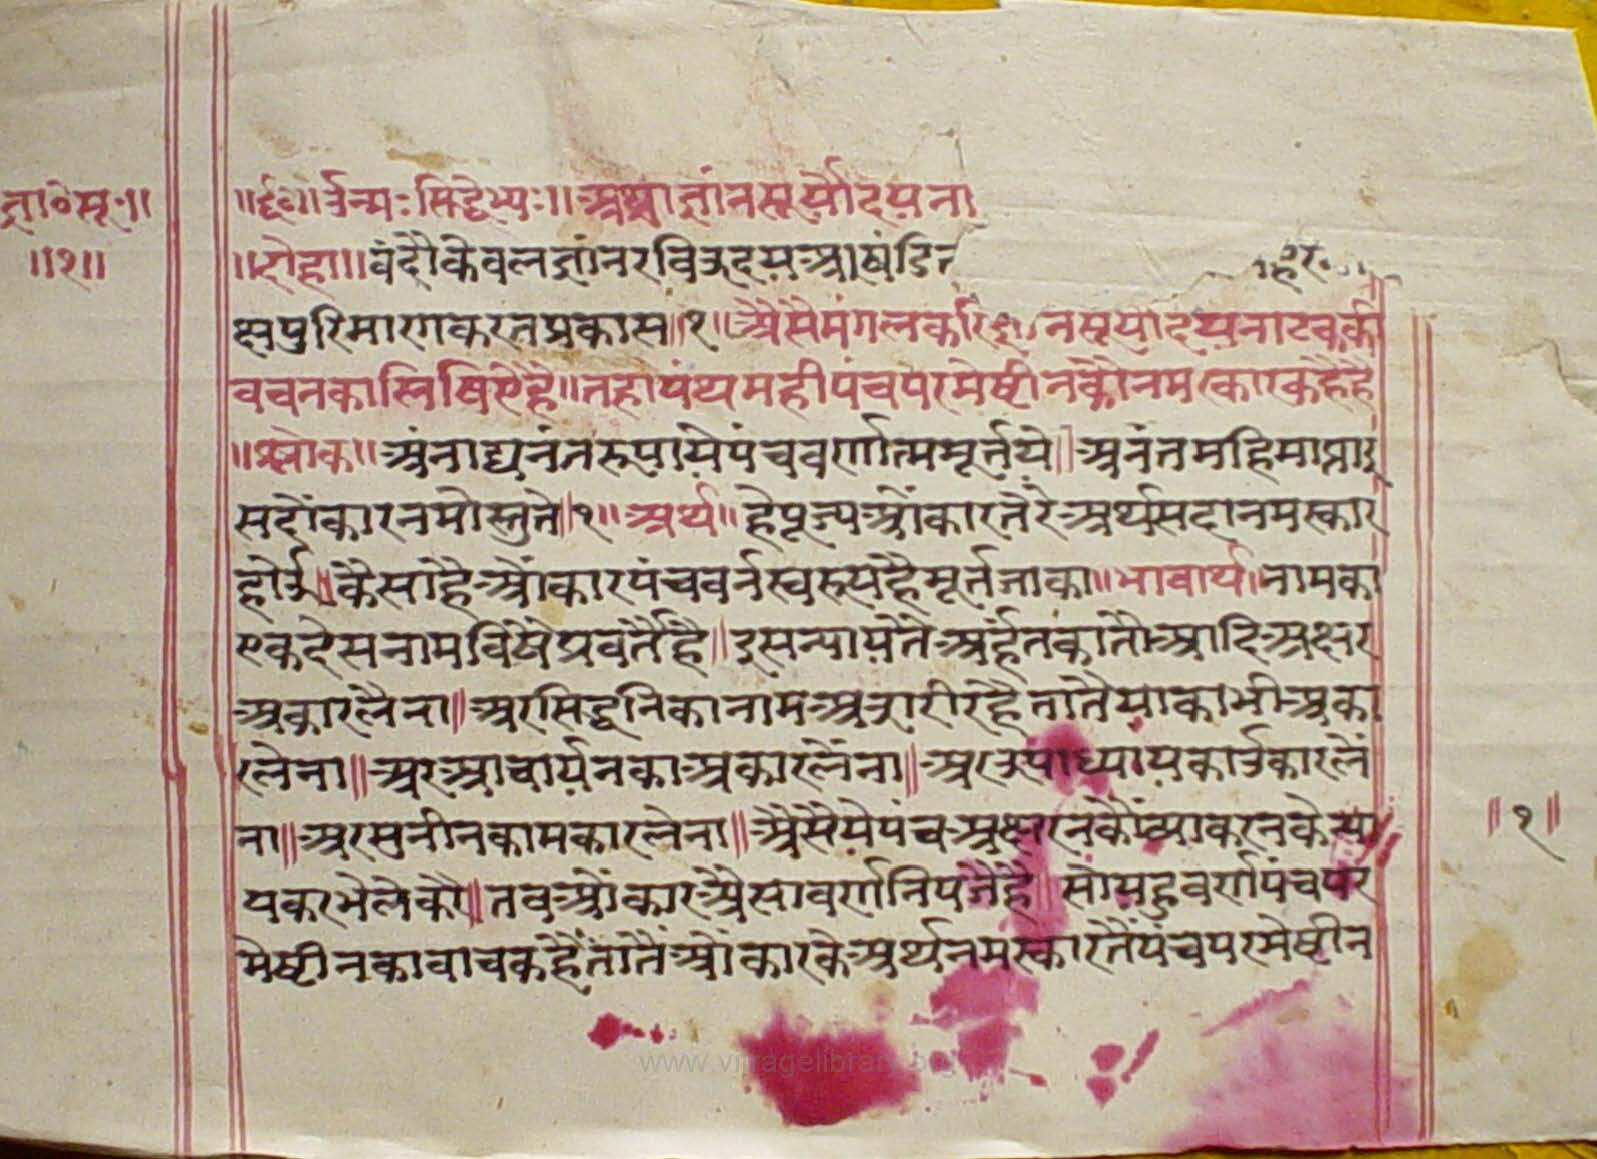 ज्ञा०सू०॥
॥१॥
॥र्द०॥र्उनमःसिद्देभ्यः॥अथज्ञांनसूर्योदयना
॥दोहा॥वंदौकेवलज्ञांनरविउदयअखंडित
क्षपुरिमारगकरतप्रकास॥१॥अैसैमंगलकरिज्ञानसूर्योदयनाटककी
वचनकालिषिएहै॥तहांप्रथमहीपंचपरमेष्टीनकौनमस्कारकरैहै
॥श्लोक॥अंनाद्यनंतरूपायेपंचवर्णात्ममूर्त्तये॥अनंतमहिमाप्ता
सदौंकारनमोस्तुते॥१॥अर्थ॥हेपूज्यओंकारतेरेअर्थसदानमस्कार
होउ॥कैसाहैओंकारपंचवर्नस्वरूपहैमूर्तजाका॥भावार्थ॥नामका
एकदेसनामविषेप्रवर्तैहै॥इसन्यायेतेअर्हंतकातौआदिअक्षर
अकारलैना॥अरसिद्धनिकानामअशरीरहैतातैयाकाभीअका
रलेना॥अरआचार्यनकाअकारलेंना॥अरउपाध्यायकाउकारलें
ना॥अरमुनीनकामकारलेना॥अैसैयेपंचअक्षरनकौंव्याकरनकेन्या
यकरभेलेकौ॥तवओंकारअैसावर्णनिपजैहै॥सोयहुवर्णपंचपर
मेष्टीनकावाचकहैतातैओंकारकेअर्थनमस्कारतैंपंचपरमेष्टीन
॥१॥
www.vitragelibrary.org